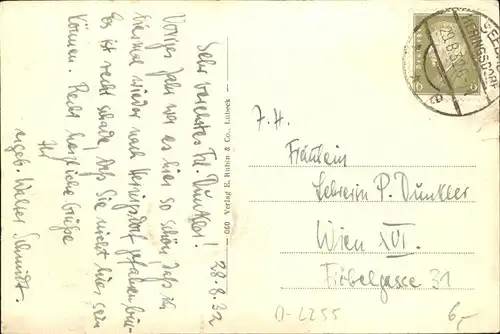 28.8.32
Sehr verehrtes Frl. Dunkler!
Voriges Jahr war es hier so schön, daß ich
diesmal wieder nach Heringsdorf gefahren bin.
Es ist recht schade, daß Sie nicht hier sein
können. Recht herzliche Grüße
Ihr
ergeb. Walter Schmidt.
060 Verlag E. Rubin & Co., Lübeck
HERINGSDORF
29.8.32
6
J. H.
Fräulein
Lehrerin P. Dunkler
Wien XVI.
Fröbelgasse 31
0-2255
6,-